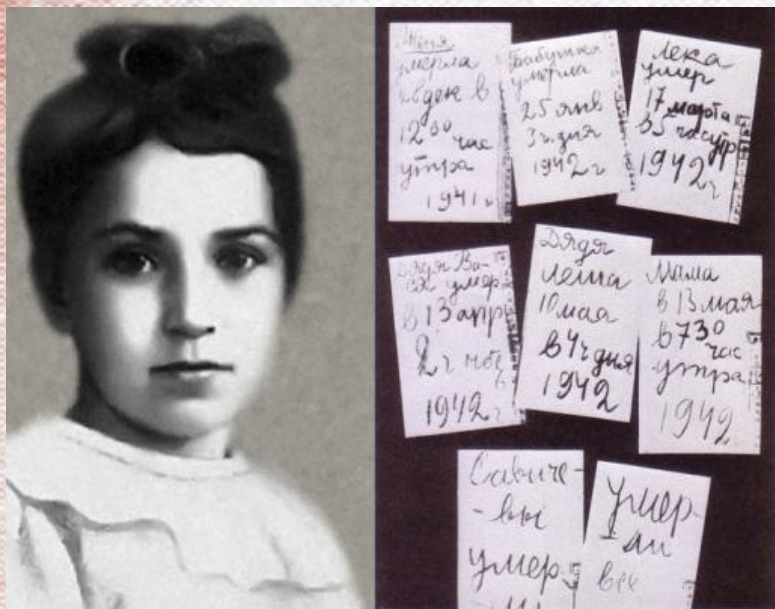 Женя
умерла
28 дек в
12 30 час
утра
1941 г
Бабушка
умерла
25 янв
3 ч. дня
1942 г
Лека
умер
17 марта
в 5 час утр
1942 г
Дядя Ва-
ся умер
в 13 апр
2 ч ноч
1942 г
Дядя
Леша
10 мая
в 4 ч дня
1942
Мама
в 13 мая
в 7 30 час
утра
1942
Савиче-
-вы
умер-
умер-
ли
все